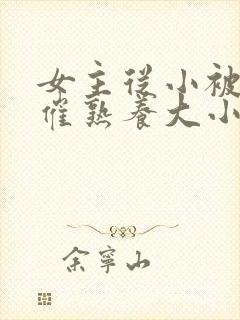 女主从小被
催熟养大小
余寧山